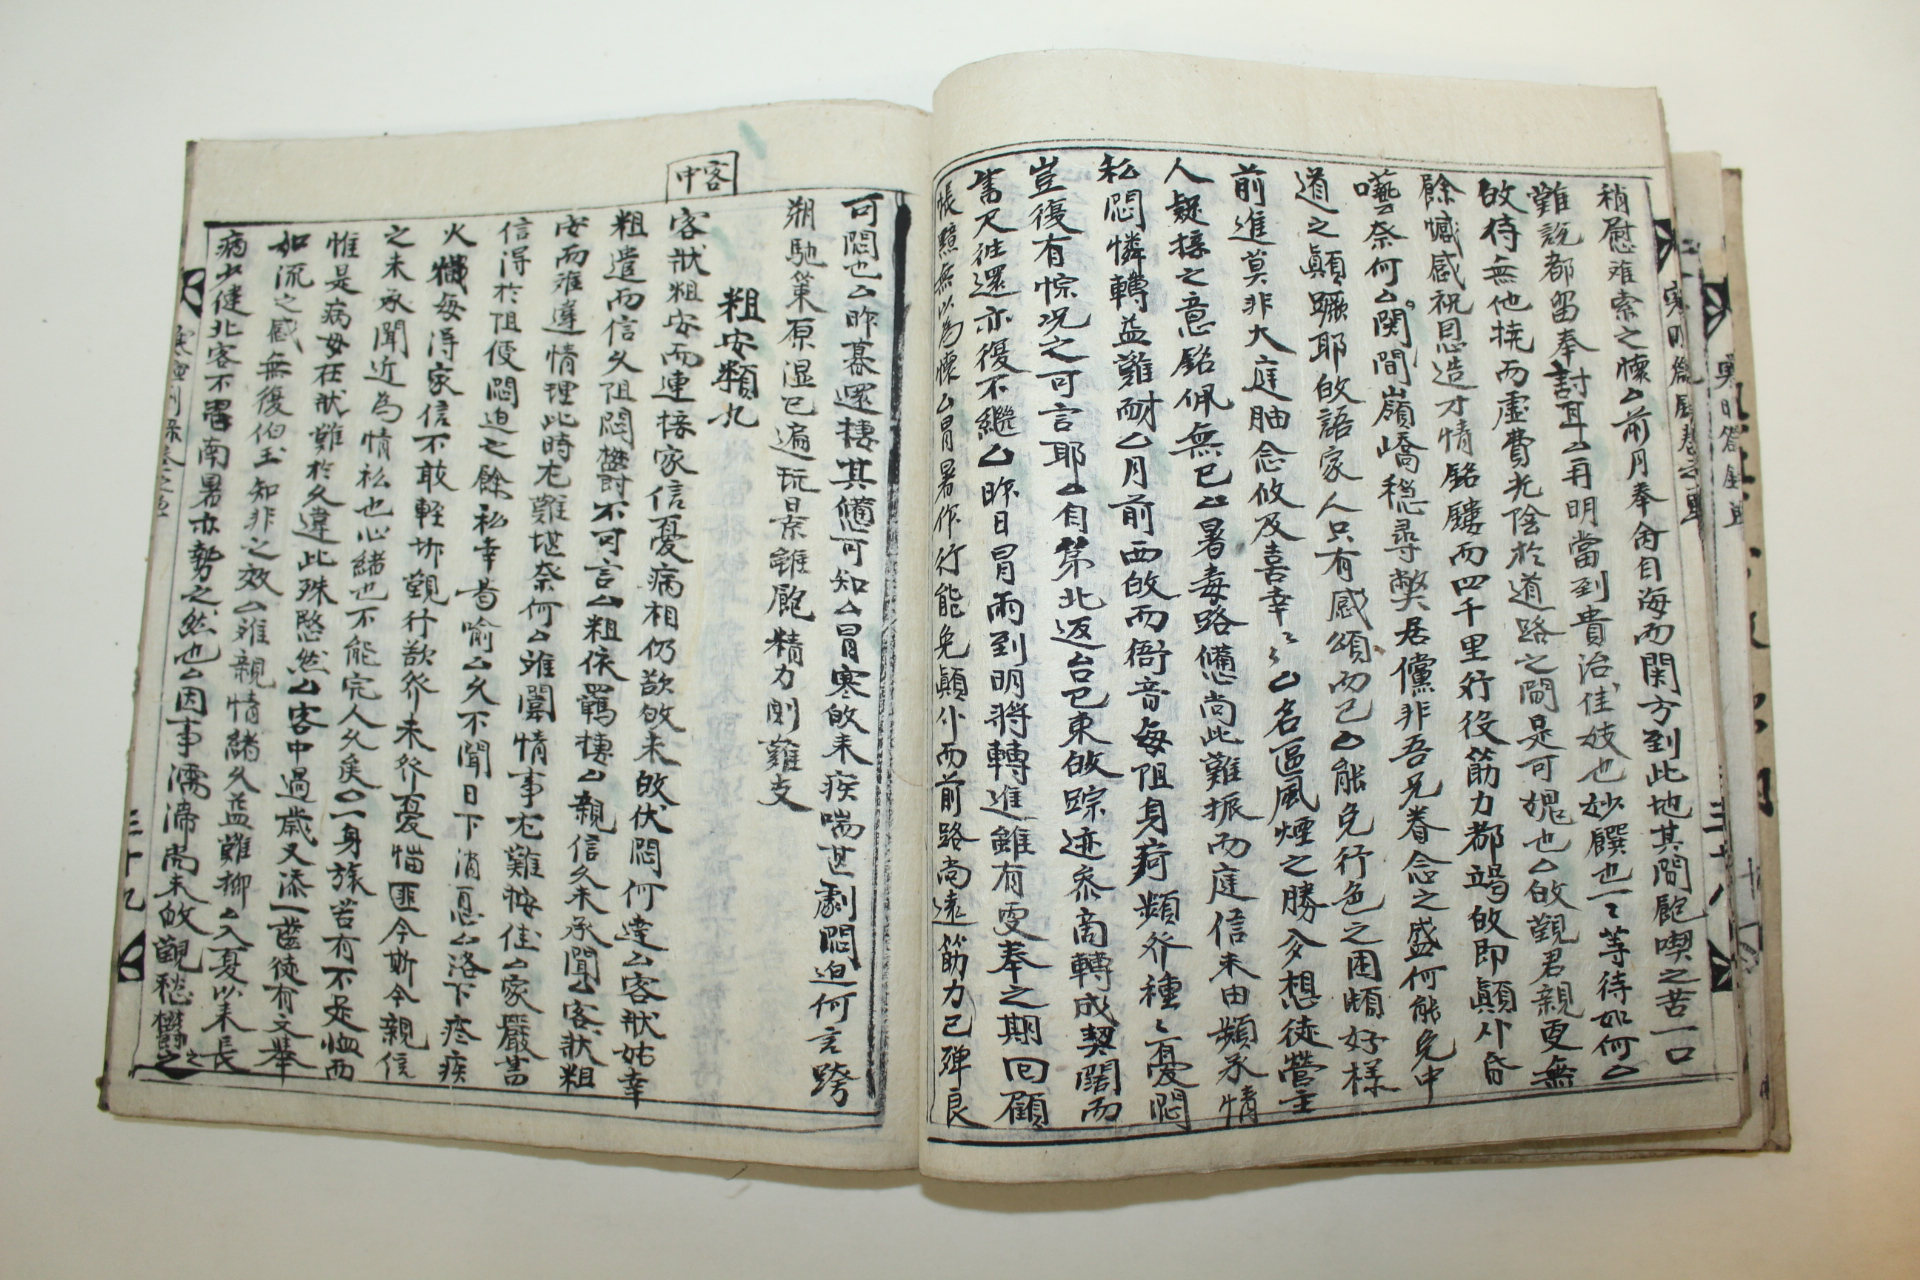 稍慰难索之懷厶前月奉命自海西関方到此地其間飽喫之苦一口
難說都留奉討耳厶再明當到貴治佳妓也妙饌也一〻等待如何厶
攸侍無他撓而虛費光陰於道路之間是可愧也厶攸觀君親更無
餘憾感祝恩造才情銘鏤而四千里行役筋力都竭攸即顛仆昏
囈奈何厶関間嶺嶠穩尋弊居儻非吾兄眷念之盛何能免中
道之顛蹶耶攸語家人只有感頌而已厶能免行色之困頓好樣
前進莫非大庭胂念攸及喜幸〻〻厶名區風煙之勝多想徒營主
人疑接之意銘佩無已厶暑毒路憊尚此難振而庭信未由頻承情
私悶憐轉益難耐厶月前西攸而衙音每阻身疴頻苶種〻憂悶
豈復有悰况之可言耶厶自第北返台已東攸踪迹參商轉成契闊而
書尺往還亦復不繼厶昨日冒雨到明將轉進雖有雯奉之期回顧
悵黯無以為懷厶冒暑作行能免顛仆而前路尚遠筋力已殫良
可悶也厶昨暮還棲其憊可知厶冒寒攸来疾喘甚劇悶迫何言跨
朔馳策原湿已遍玩景雖飽精力則難支
粗安類九
客中
客狀粗安而連接家信憂病相仍欲攸未攸伏悶何達厶客狀姑幸
粗遣而信久阻悶欝不可言厶粗依羈棲厶親信久未承聞厶客狀粗
安而难違情理此時尤難堪奈何厶雖闡情事尤難按住厶家嚴書
信淂於阻便悶迫之餘私幸曷喻厶久不聞日下消息厶洛下疹疾
火熾每淂家信不敢輕坼觀行欲苶未苶憂惱匪今斯今親信
之未承聞近為情私也心緒也不能完人久矣厶一身旅若有不足恤而
惟是病母在狀難於久違此殊愍然厶客中過歲又添一齒徒有文舉
如流之感無復伯玉知非之效厶难親情緒久益難抑厶入夏以来長
病少健北客不習南暑亦勢之然也厶因事濡滯尚未攸觀愁欝之之
三十九